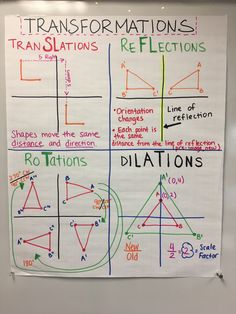 TRANSFORMATIONS
TRANSLATIONS
5 Right
5 down
Shapes move the same
distance and direction.
REFLECTIONS
A
B
C
A'
C'
B'
• Orientation
changes
• Each point is
the same
distance from the line of reflection
Line of
reflection
ROTATIONS
270° CW
90° CW
180°
A
B
C
DILATIONS
A' (0,4)
A (0,2)
C
B
C'
B'
New
Old
4/2 = 2 = Scale
Factor